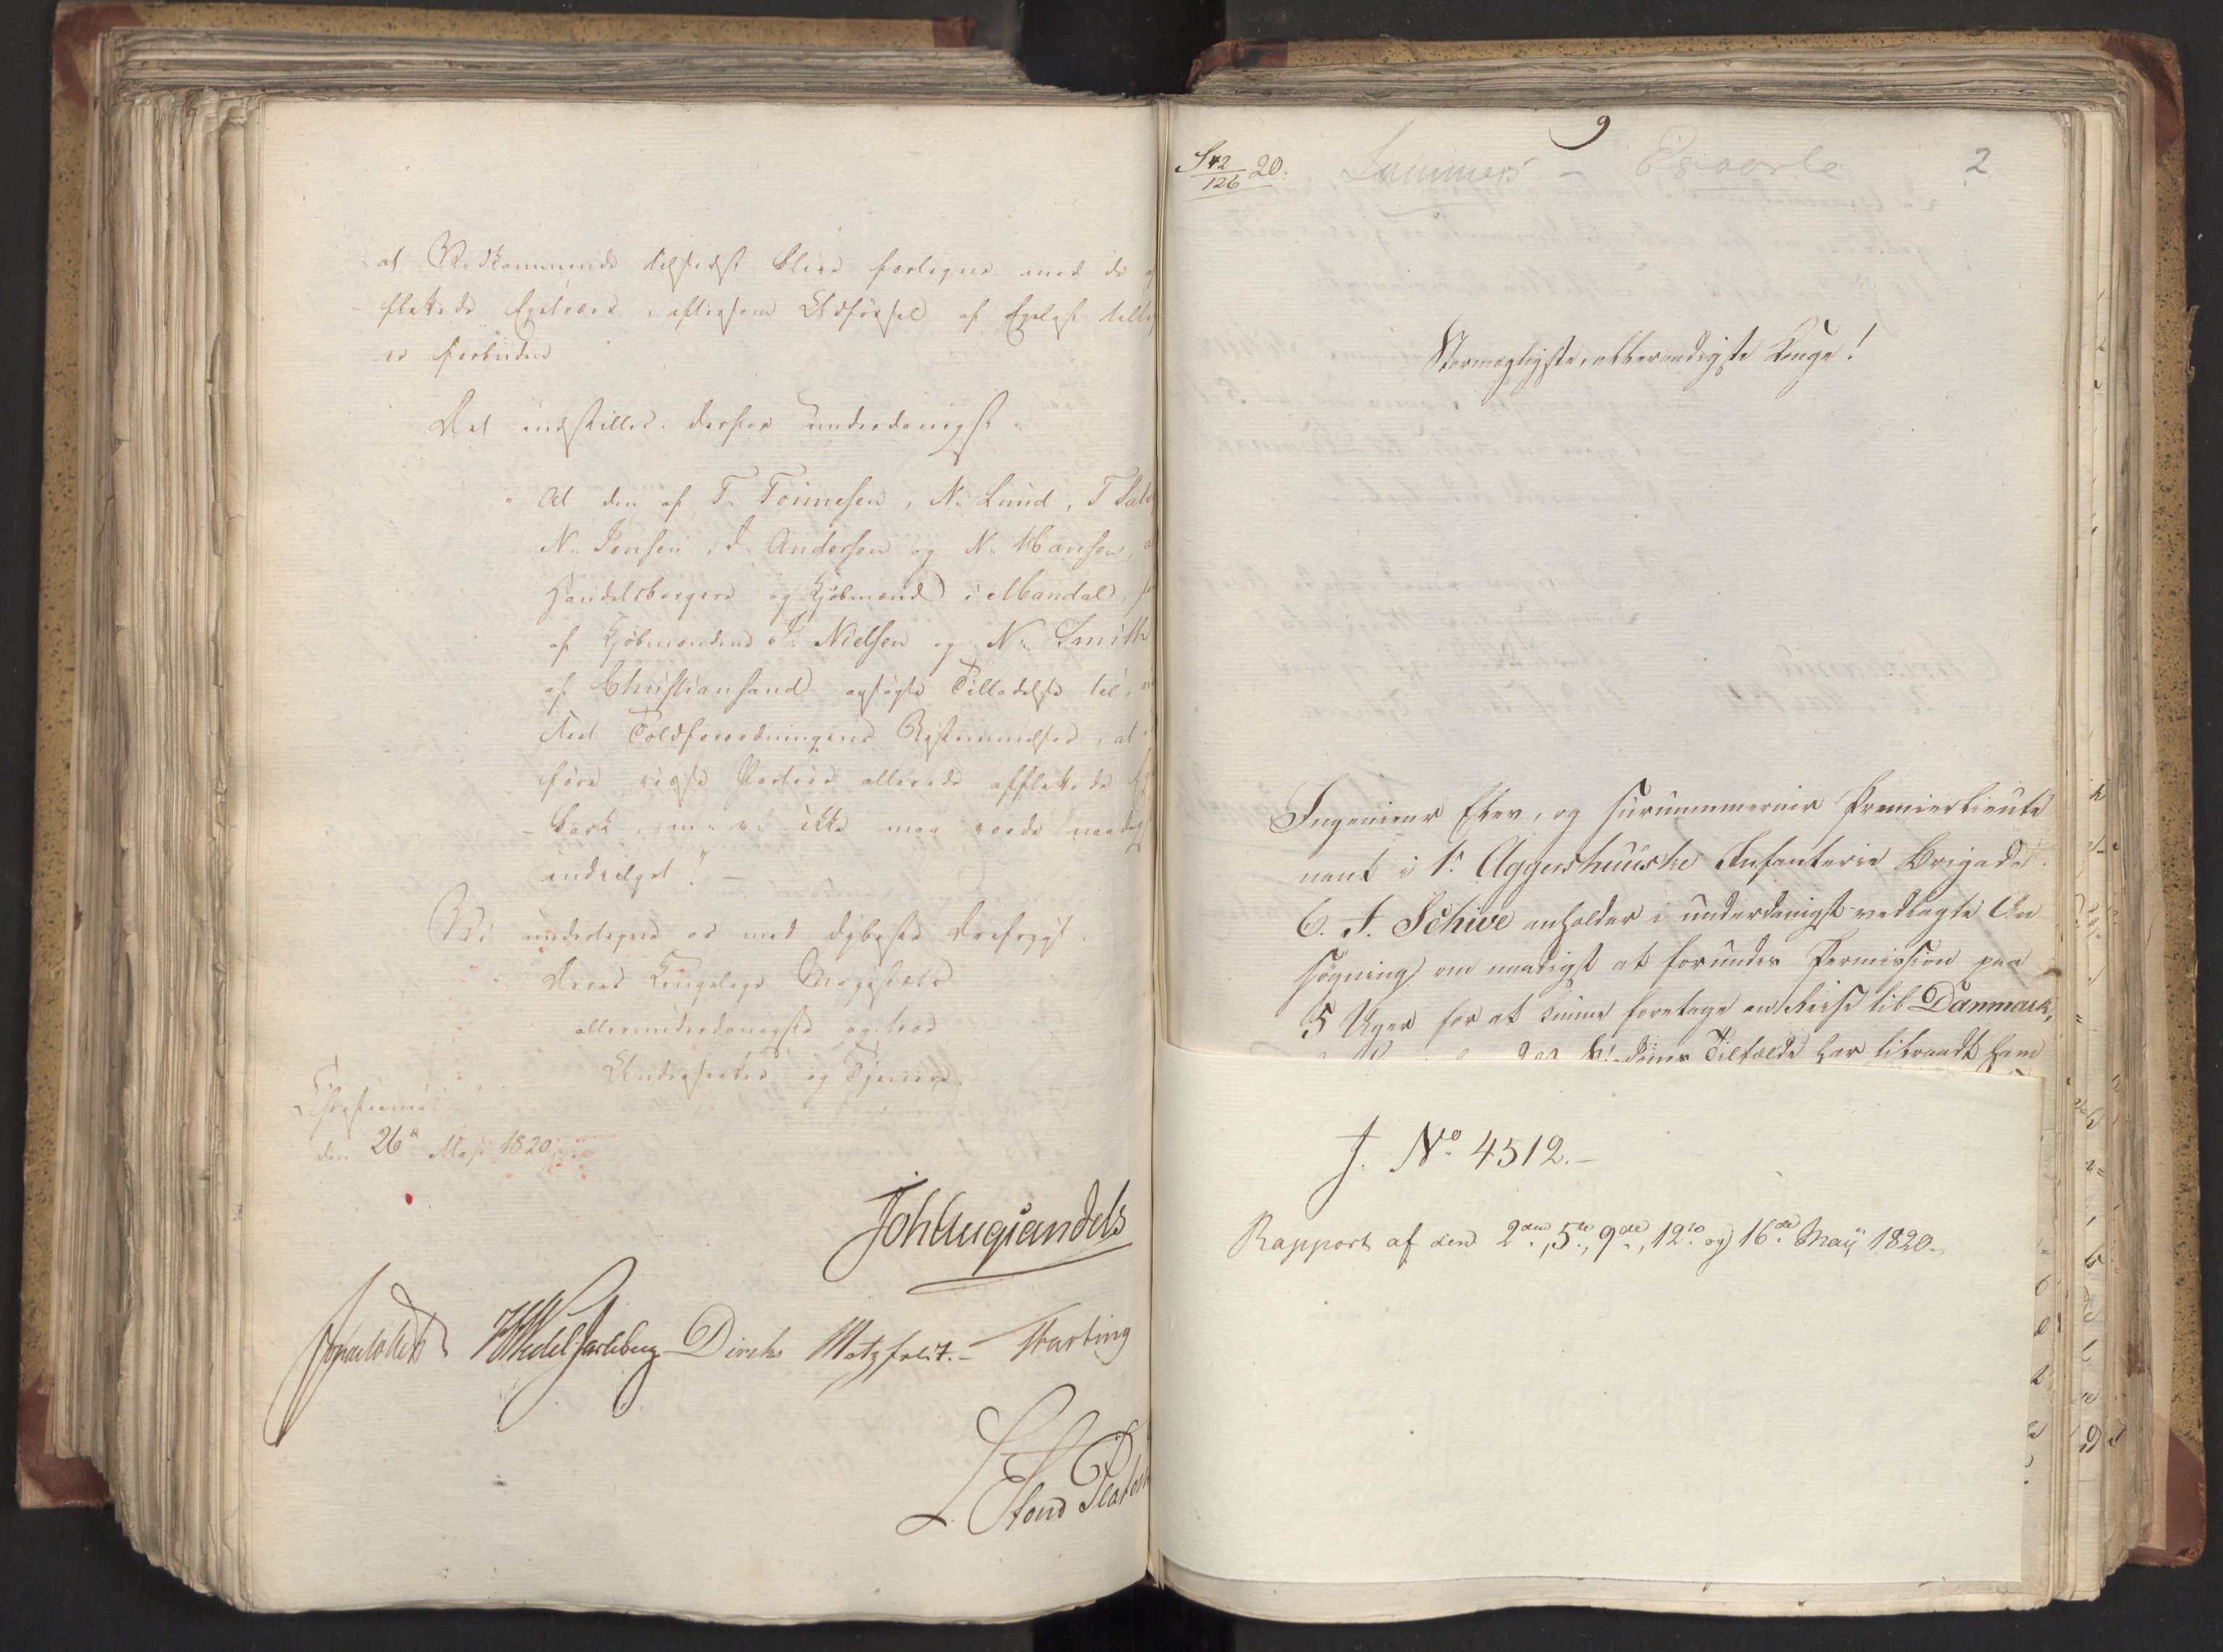 at Vedkommende tilsidst blive forlegne med de
flækkede Egetræer, eftersom Udførsel af Egelast
er forbuden
Det indstilles derfor underdanigst:
"At den af T. Tönnesen, N. Lund, T
N. Jensen, J. Andersen og N. Hansen,
Handelsborgere og Kjøbmænd i Mandal,
af Kjøbmændene J. Nielsen og N. Smith
af Christiansand ansøgte Tilladelse til,
Toldforordningens Bestemmelser, at
føre visse Partier allerede afflækkede
bark, ikke maa vorde naadigst
indvilget". –
Vi undertegne os med dybeste Ærefrygt.
Deres Kongelige Majestæts
allerunderdanigste og troe
Undersaatter og Tjenere.
Christiania
den 26de Maji 1820.
Joh Aug Sandels
Jonas Collett HWedel Jarlsberg Diriks Motzfeldt. – Krarting
9
S 42/126 20. Sommers – 2
Stormægtigste, allernaadigste Konge!
Ingenieur Elev, og surnummerair Premierlieute
nant i 1. Aggershuuske Infanterie Brigade
C. J. Schive anholder i underdanigst vedlagte An
søgning om naadigst at forundes Permission paa
5 Uger for at kunne foretage en Reise til Danmark,
Tilfælde har tilraadt ham
J. No 4512. –
Rapport af den 2den, 5te, 9de, 12te og 16de Maij 1820.